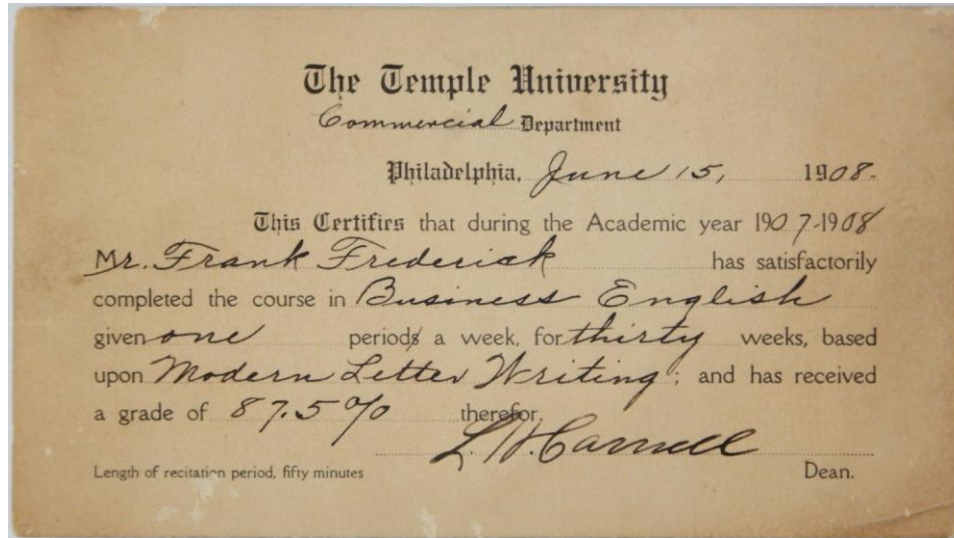 The Temple University
Commercial Department
Philadelphia, June 15, 1908.
This Certifies that during the Academic year 1907-1908
Mr. Frank Frederick has satisfactorily
completed the course in Business English
given one period a week, for thirty weeks, based
upon Modern Letter Writing; and has received
a grade of 87.5% therefor.
L. H. Carnell
Length of recitation period, fifty minutes Dean.